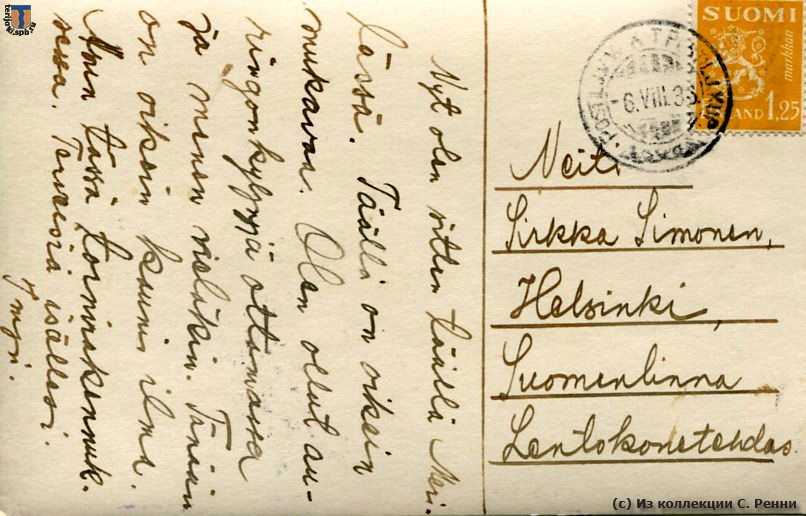 Nyt olen sitten täällä Meri-
lässä. Täällä on oikein
mukavaa. Olen ollut au-
ringonkylpyjä ottamassa
ja menen vieläkin. Tänään
on oikein kaunis ilma.
Asun tässä tornirakennuk-
sessa. Terveisiä isällesi.
SUOMI
markkaa
1,25
-6.VIII.36
Neiti
Sirkka Simonen,
Helsinki,
Suomenlinna
Lentokonetehdas.
terijoki.spb.ru
(c) Из коллекции С. Ренни